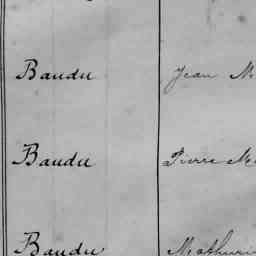 Baudu Jean M
Baudu Pierre Ma
Baudu Mathurin